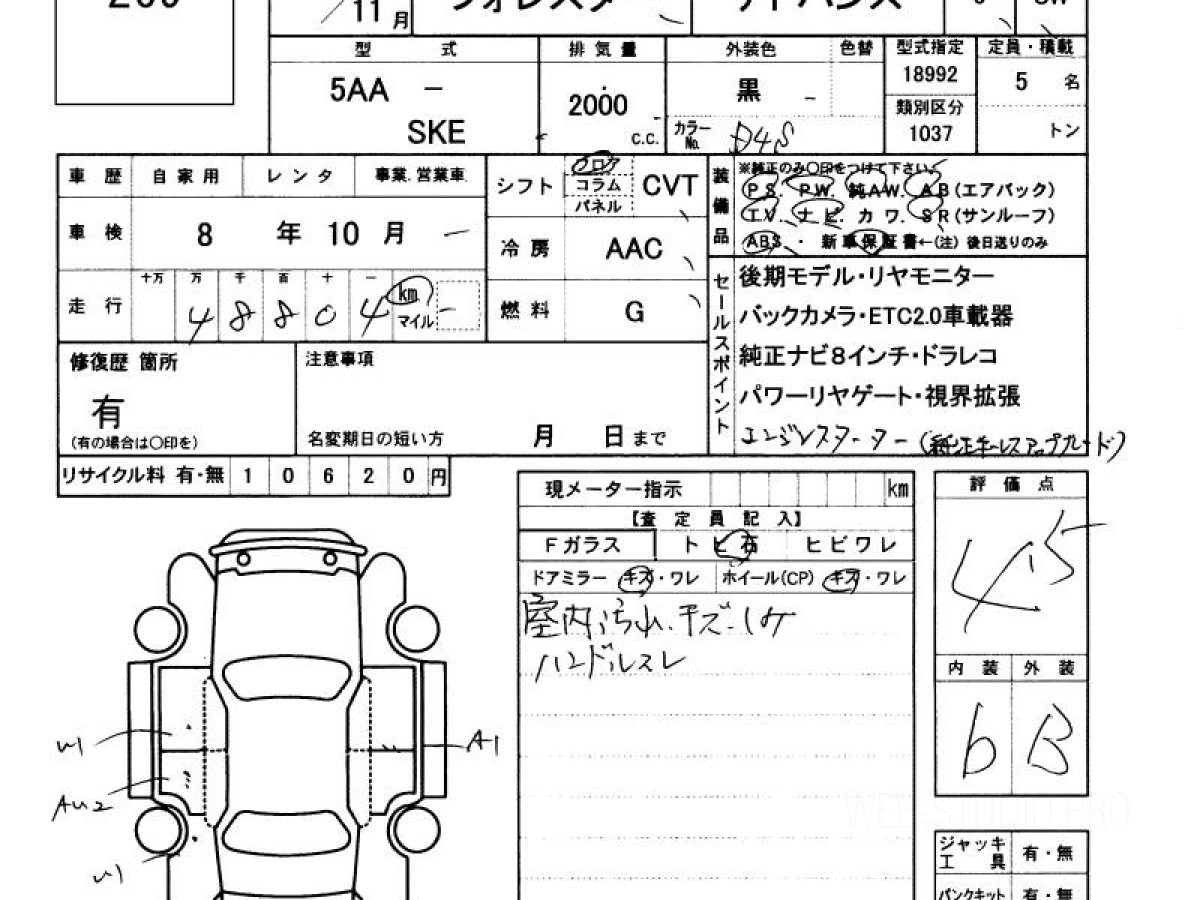 11月
フォレスター
アドバンス
型 式
排 気 量
外装色
色替
型式指定
定員・積載
5AA －
SKE
2000
c.c.
黒
カラーNo.
D4S
18992
類別区分
1037
5 名
トン
車 歴 自 家 用 レ ン タ 事業.営業車
車 検 8 年 10 月
走 行 十万 万 千 百 十 一
4 8 8 0 4 km マイル
シフト フロア コラム パネル CVT
冷 房 AAC
燃 料 G
装備品
※純正のみ○印をつけて下さい。
PS. PW. 純AW. AB(エアバック)
TV. ナビ. カワ. SR(サンルーフ)
ABS ・ 新車保証書←(注) 後日送りのみ
セールスポイント
後期モデル・リヤモニター
バックカメラ・ETC2.0車載器
純正ナビ8インチ・ドラレコ
パワーリヤゲート・視界拡張
エンジンスターター(純正キーレスアップグレード)
修復歴 箇所
有
(有の場合は○印を)
注意事項
名変期日の短い方 月 日まで
リサイクル料 有・無 1 0 6 2 0 円
現メーター指示 km
【査 定 員 記 入】
Fガラス ト ビ 石 ヒビワレ
ドアミラー キズ・ワレ ホイール(CP) キズ・ワレ
室内汚れ.キズ.シケ
ハンドルスレ
評 価 点
4.5
内 装 外 装
b B
W1
A1
AU2
W1
WEB-STUDIO PRO
ジャッキ工具 有・無
パンクキット 有・無